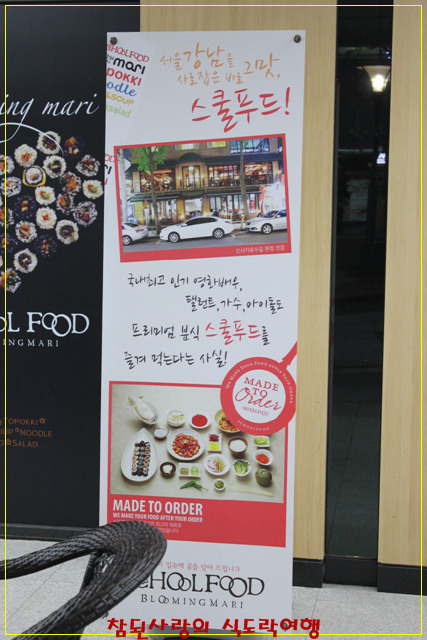 SCHOOLFOOD
mari
POKKI
oodle
&SOUP
salad
서울 강남을
사로잡은 바로 그 맛,
스쿨푸드!
신사가로수길 본점 전경
국내최고 인기 영화배우,
탤런트, 가수, 아이돌도
프리미엄 분식 스쿨푸드를
즐겨 먹는다는 사실!
WE MAKE YOUR FOOD AFTER YOUR ORDER
MADE
TO
Order
SCHOOLFOOD
MADE TO ORDER
WE MAKE YOUR FOOD AFTER YOUR ORDER
입속에 꿈을 담아 드립니다
SCHOOLFOOD
BLOOMINGMARI
ing mari
OL FOOD
MINGMARI
TOPOKKI
OUP NOODLE
SALAD
참된사랑의 식도락여행